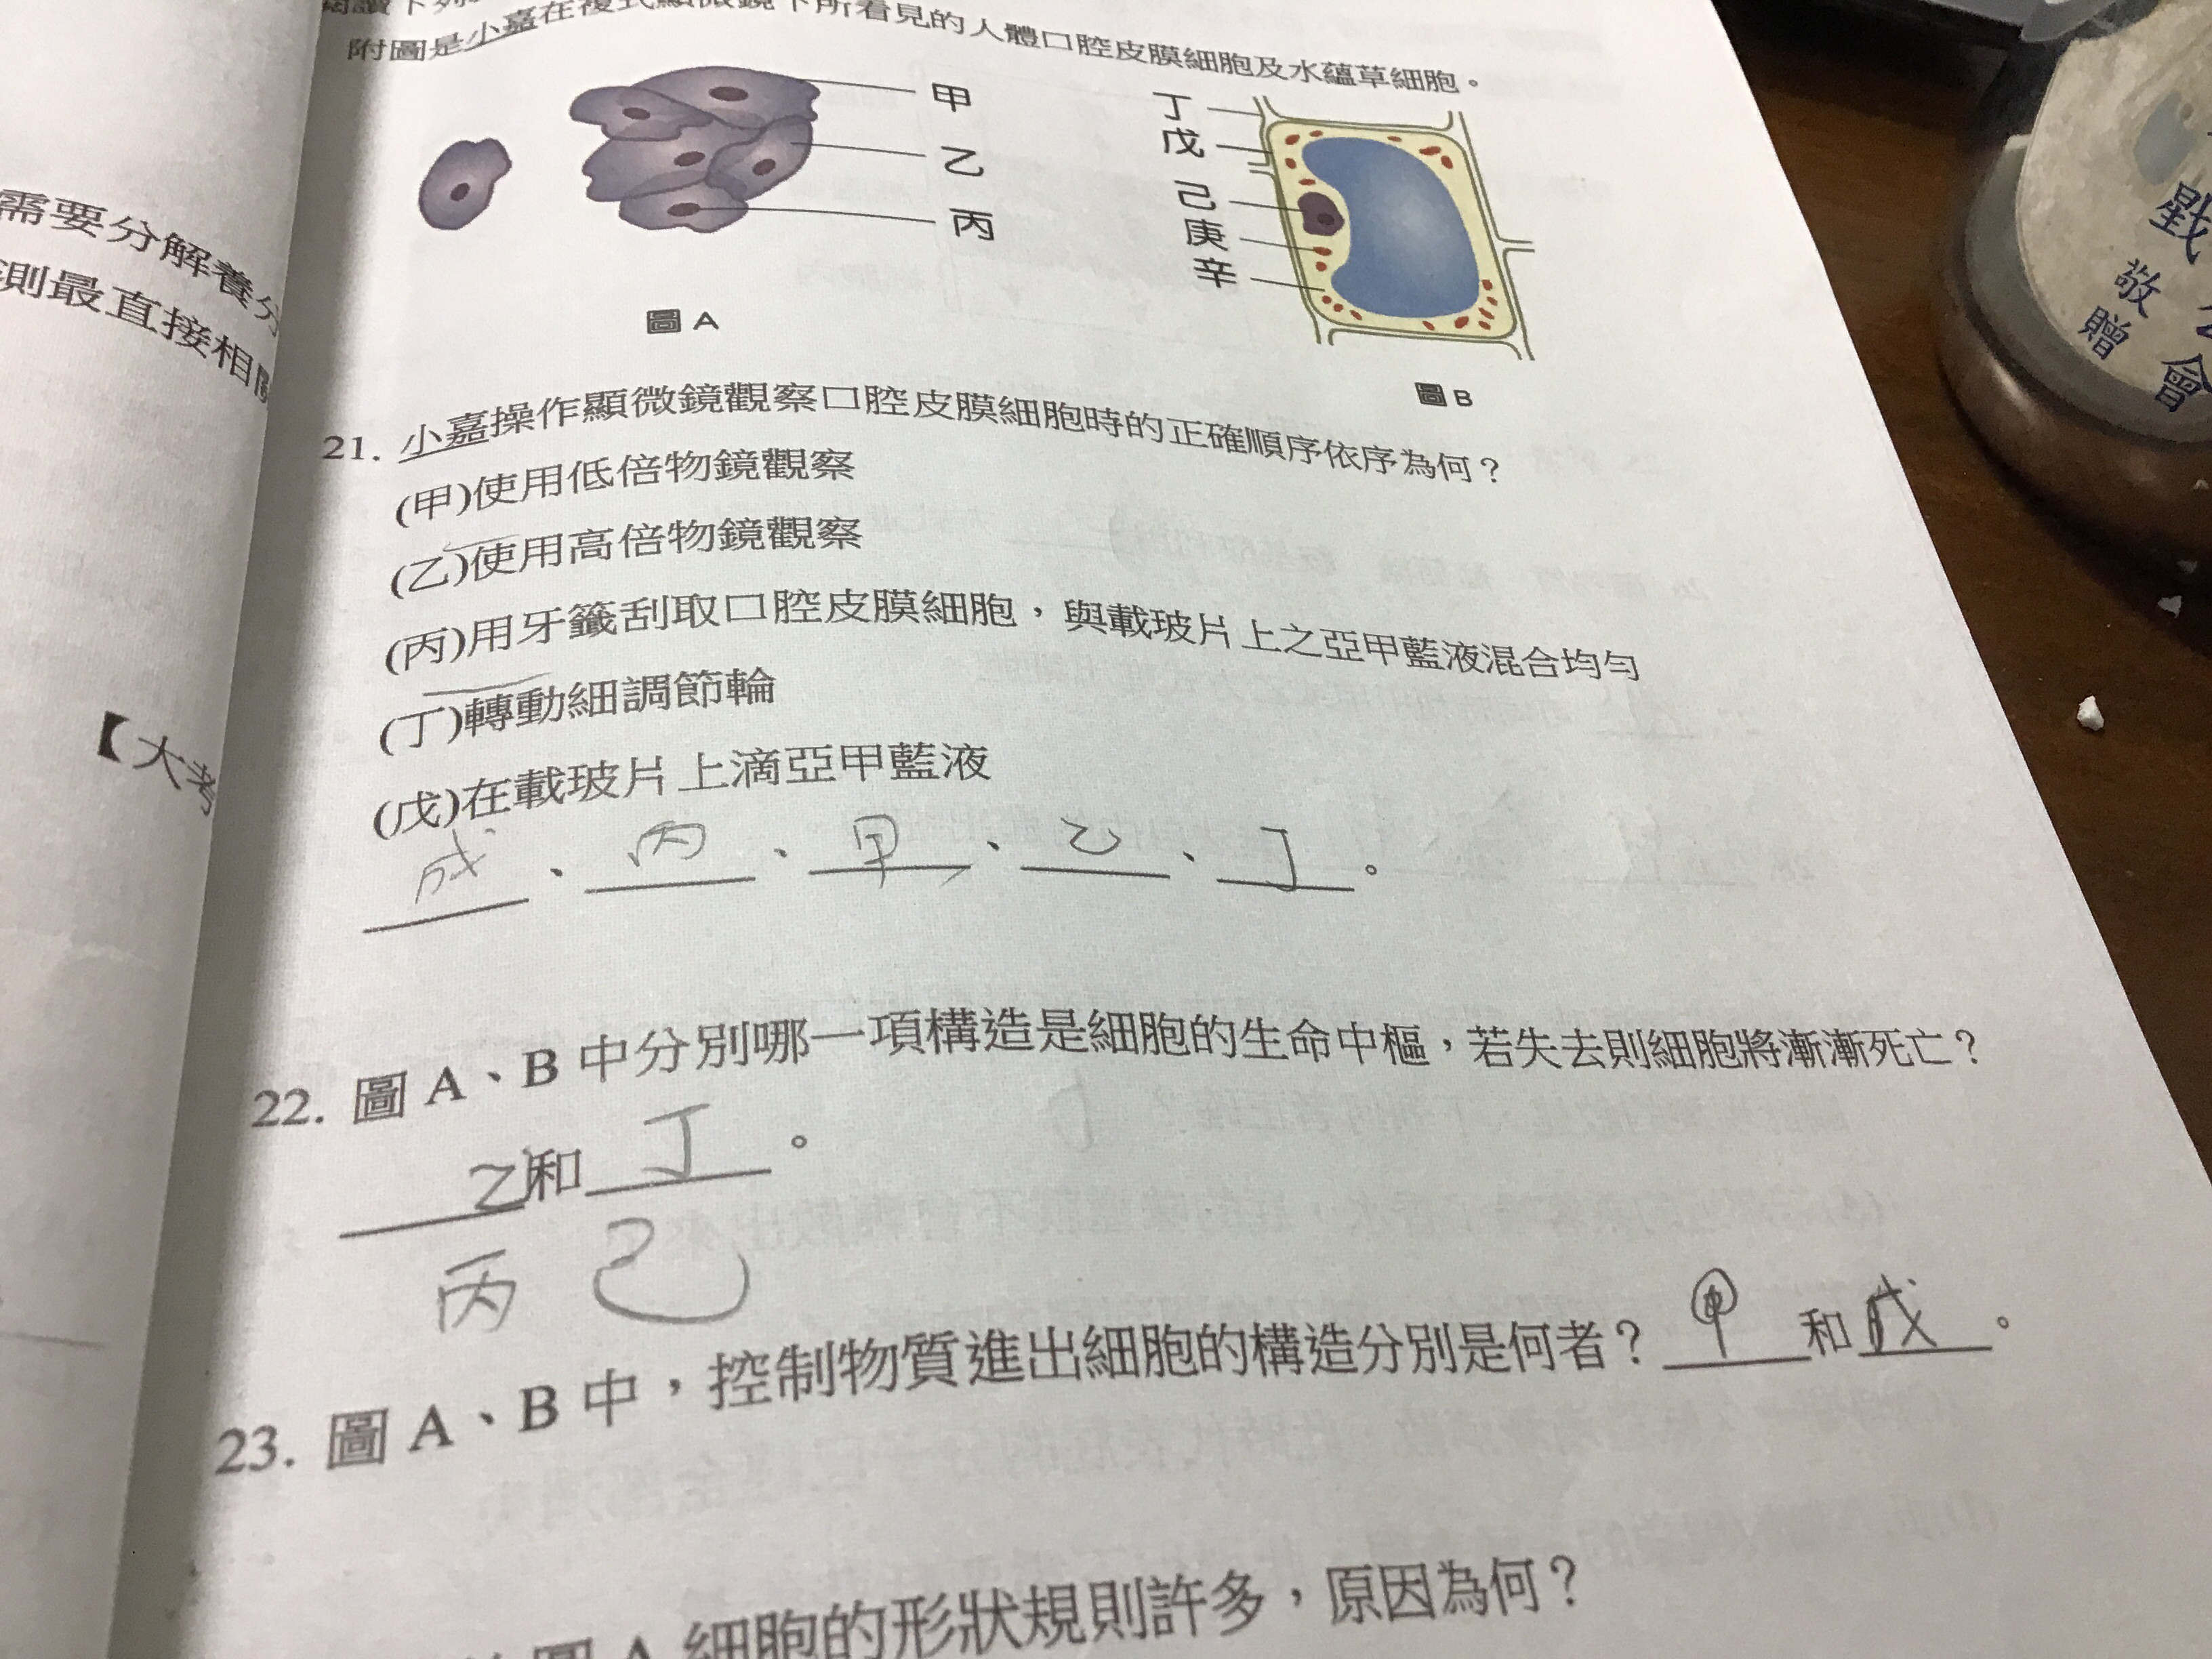 閱讀下列
附圖是小嘉在複式顯微鏡下所看見的人體口腔皮膜細胞及水蘊草細胞。
甲
乙
丙
圖 A
丁
戊
己
庚
辛
圖 B
21. 小嘉操作顯微鏡觀察口腔皮膜細胞時的正確順序依序為何？
(甲)使用低倍物鏡觀察
(乙)使用高倍物鏡觀察
(丙)用牙籤刮取口腔皮膜細胞，與載玻片上之亞甲藍液混合均勻
(丁)轉動細調節輪
(戊)在載玻片上滴亞甲藍液
戊、丙、甲、乙、丁。
22. 圖 A、B 中分別哪一項構造是細胞的生命中樞，若失去則細胞將漸漸死亡？
乙和丁。
丙 己
23. 圖 A、B 中，控制物質進出細胞的構造分別是何者？甲和戊。
圖 A 細胞的形狀規則許多，原因為何？
需要分解養分
測最直接相關
【大考
敬贈
會